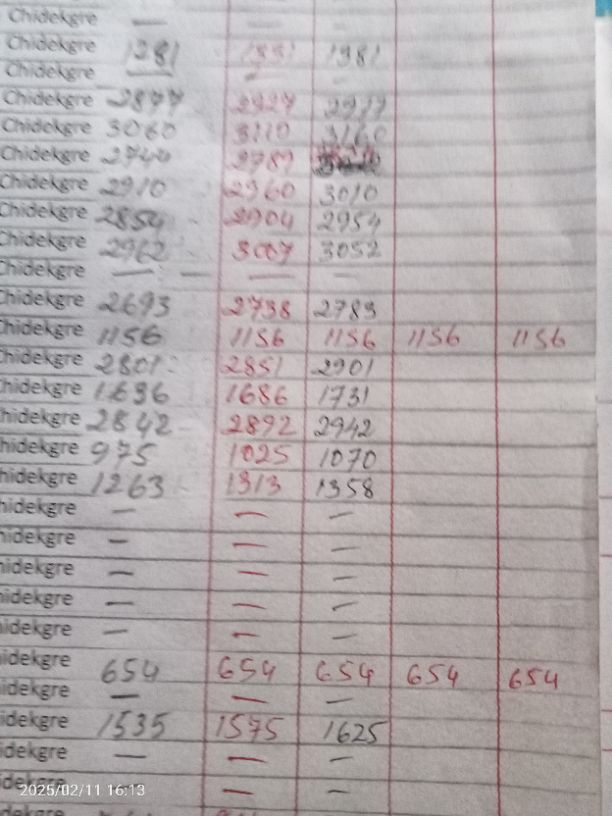 Chidekgre — — —
Chidekgre 1281 1331 1381
Chidekgre — — —
Chidekgre 2877 2927 2977
Chidekgre 3060 3110 3160
Chidekgre 2740 2789
Chidekgre 2910 2960 3010
Chidekgre 2854 2904 2954
Chidekgre 2962 3007 3052
Chidekgre — — — —
Chidekgre 2693 2738 2783
Chidekgre 1156 1156 1156 1156 1156
Chidekgre 2801 2851 2901
hidekgre 1636 1686 1731
hidekgre 2842 2892 2942
hidekgre 975 1025 1070
hidekgre 1263 1313 1358
hidekgre — — —
hidekgre — — —
idekgre — — —
hidekgre — — —
idekgre — — —
idekgre 654 654 654 654 654
idekgre — — —
idekgre 1535 1575 1625
idekgre — — —
idekgre — — —
2025/02/11 16:13